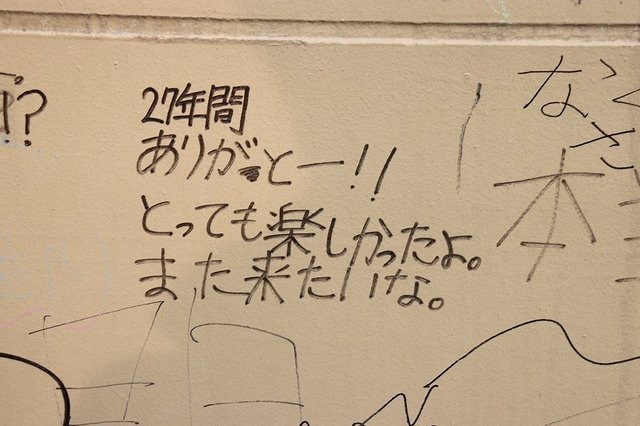 27年間
ありがとー!!
とっても楽しかったよ。
また来たいな。
なく
さ
本